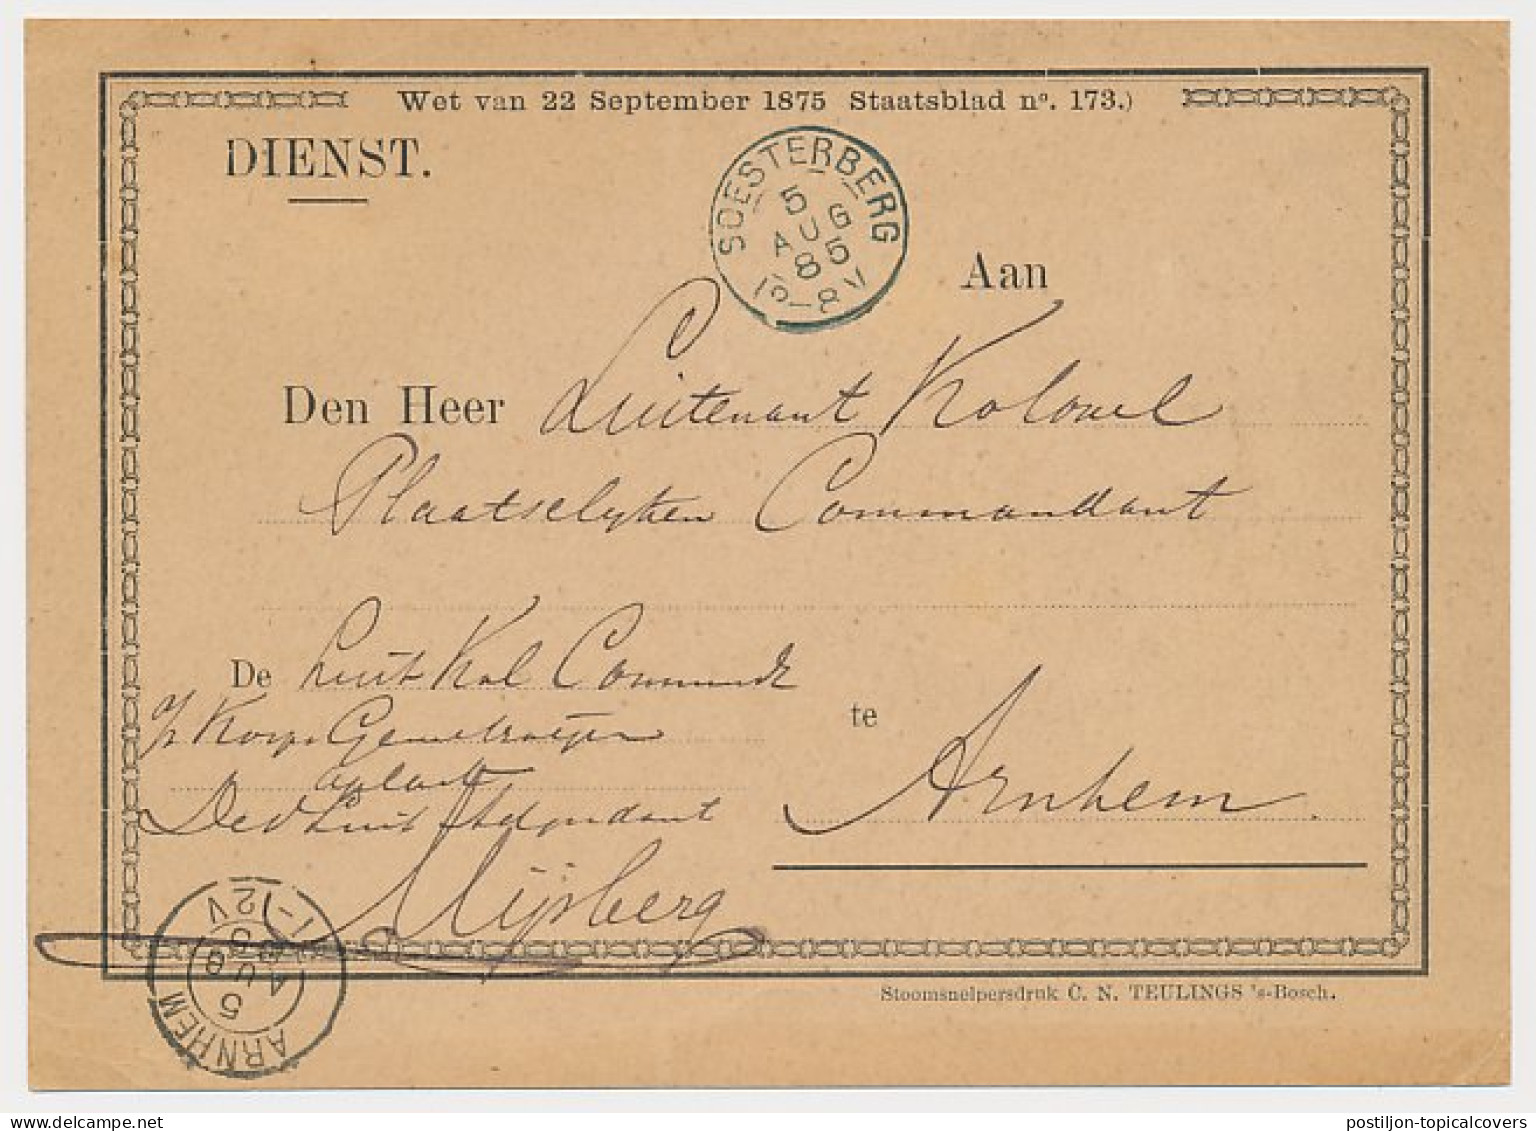 Wet van 22 September 1875 Staatsblad nº. 173.)
DIENST.
SOESTERBERG
5 AUG 85
12-8V
Aan
Den Heer Luitenant Kolonel
Plaatselyken Commandant
De Luit Kol Commandt
Korps
te Arnhem
Luit Adjudant
ARNHEM
5 AUG 85
1-2V
Stoomsnelpersdruk C. N. TEULINGS 's-Bosch.
postiljon-topicalcovers